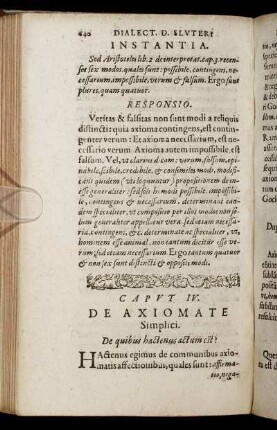 440 DIALECT. D. SLVTERI
INSTANTIA.
Sed Aristoteles lib. 2 de interpretat. cap. 3. recen-
set sex modos, quales sunt: possibile, contingens, ne-
cessarium, impossibile, verum & falsum. Ergo sunt
plures, quam quatuor.
RESPONSIO.
Veritas & falsitas non sunt modi à reliquis
distincti: quia axioma contingens, est contin-
genter verum: Et axioma necessarium, est ne-
cessario verum Axioma autem impossibile, est
falsum. Vel, ut clarius dicam: verum, falsum, opi-
nabile, scibile, credibile, & consimiles modi, modifi-
cant quidem propositionem
esse generaliter: sed isti sex modi possibile, impossibi-
le, contingens & necessarium, determinant
dem specialiter, ut compositio per alios modos
dum generaliter appellatur vera, sed etiam necessa-
ria, contingens, &c. determinatè ac specialiter, ut,
hominem esse animal, non tantùm dicitur esse ve-
rum, sed etiam necessarium. Ergo tantum quatuor
& non sex sunt distincti & oppositi modi.
CAPVT IV.
DE AXIOMATE
Simplici.
De quibus hactenus actum est?
HActenus egimus de communibus axio-
matis affectionibus, quales sunt: affirma-
tio, nega-